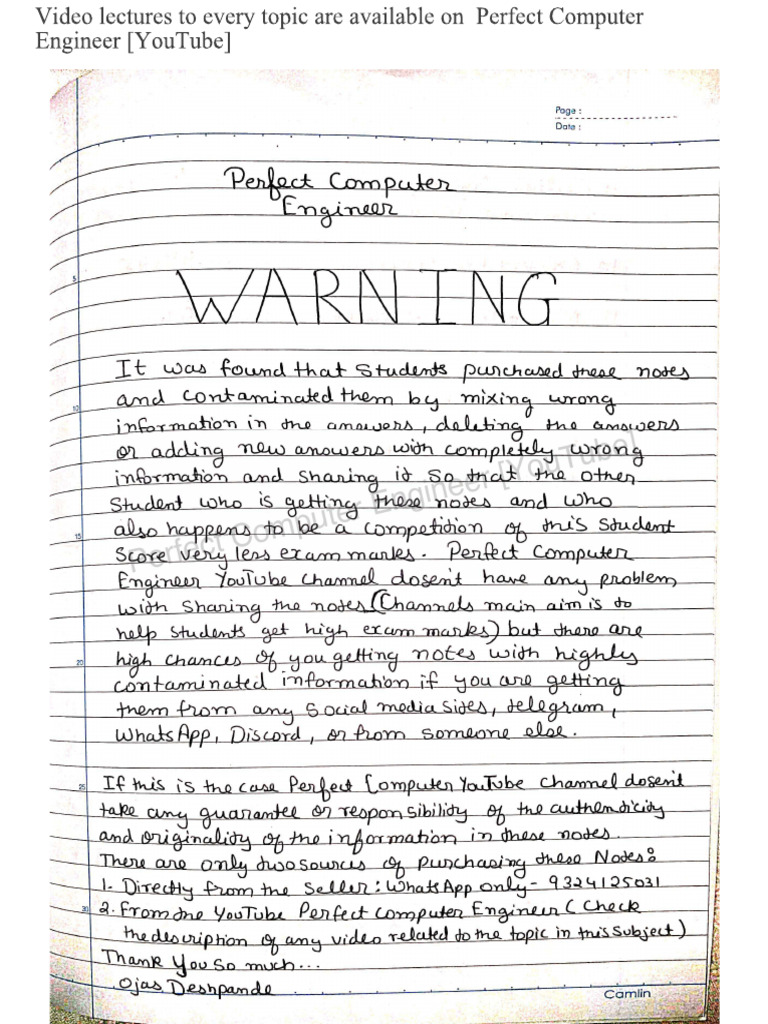 Video lectures to every topic are available on Perfect Computer
Engineer [YouTube]
Page :
Date :
Perfect Computer
Engineer
5
WARNING
It was found that Students purchased these notes
and contaminated them by mixing wrong
10
information in the answers, deleting the answers
or adding new answers with completely wrong
information and sharing it so that the other
Student who is getting these notes and who
also happens to be a competition of this Student
15
Score very less exam marks. Perfect Computer
Engineer YouTube channel dosen't have any problem
with sharing the notes (Channels main aim is to
help students get high exam marks) but there are
high chances of you getting notes with highly
20
contaminated information if you are getting
them from any Social media sites, telegram,
WhatsApp, Discord, or from someone else.
If this is the case Perfect Computer YouTube channel dosen't
25
take any guarantee or responsibility of the authenticity
and originality of the information in these notes.
There are only two sources of purchasing these Notes:
1. Directly from the Seller : WhatsApp only - 9324125031
2. From the YouTube Perfect Computer Engineer ( Check
30
the description of any video related to the topic in this subject )
Thank You So much...
Ojas Deshpande
Camlin
Perfect Computer Engineer [YouTube]